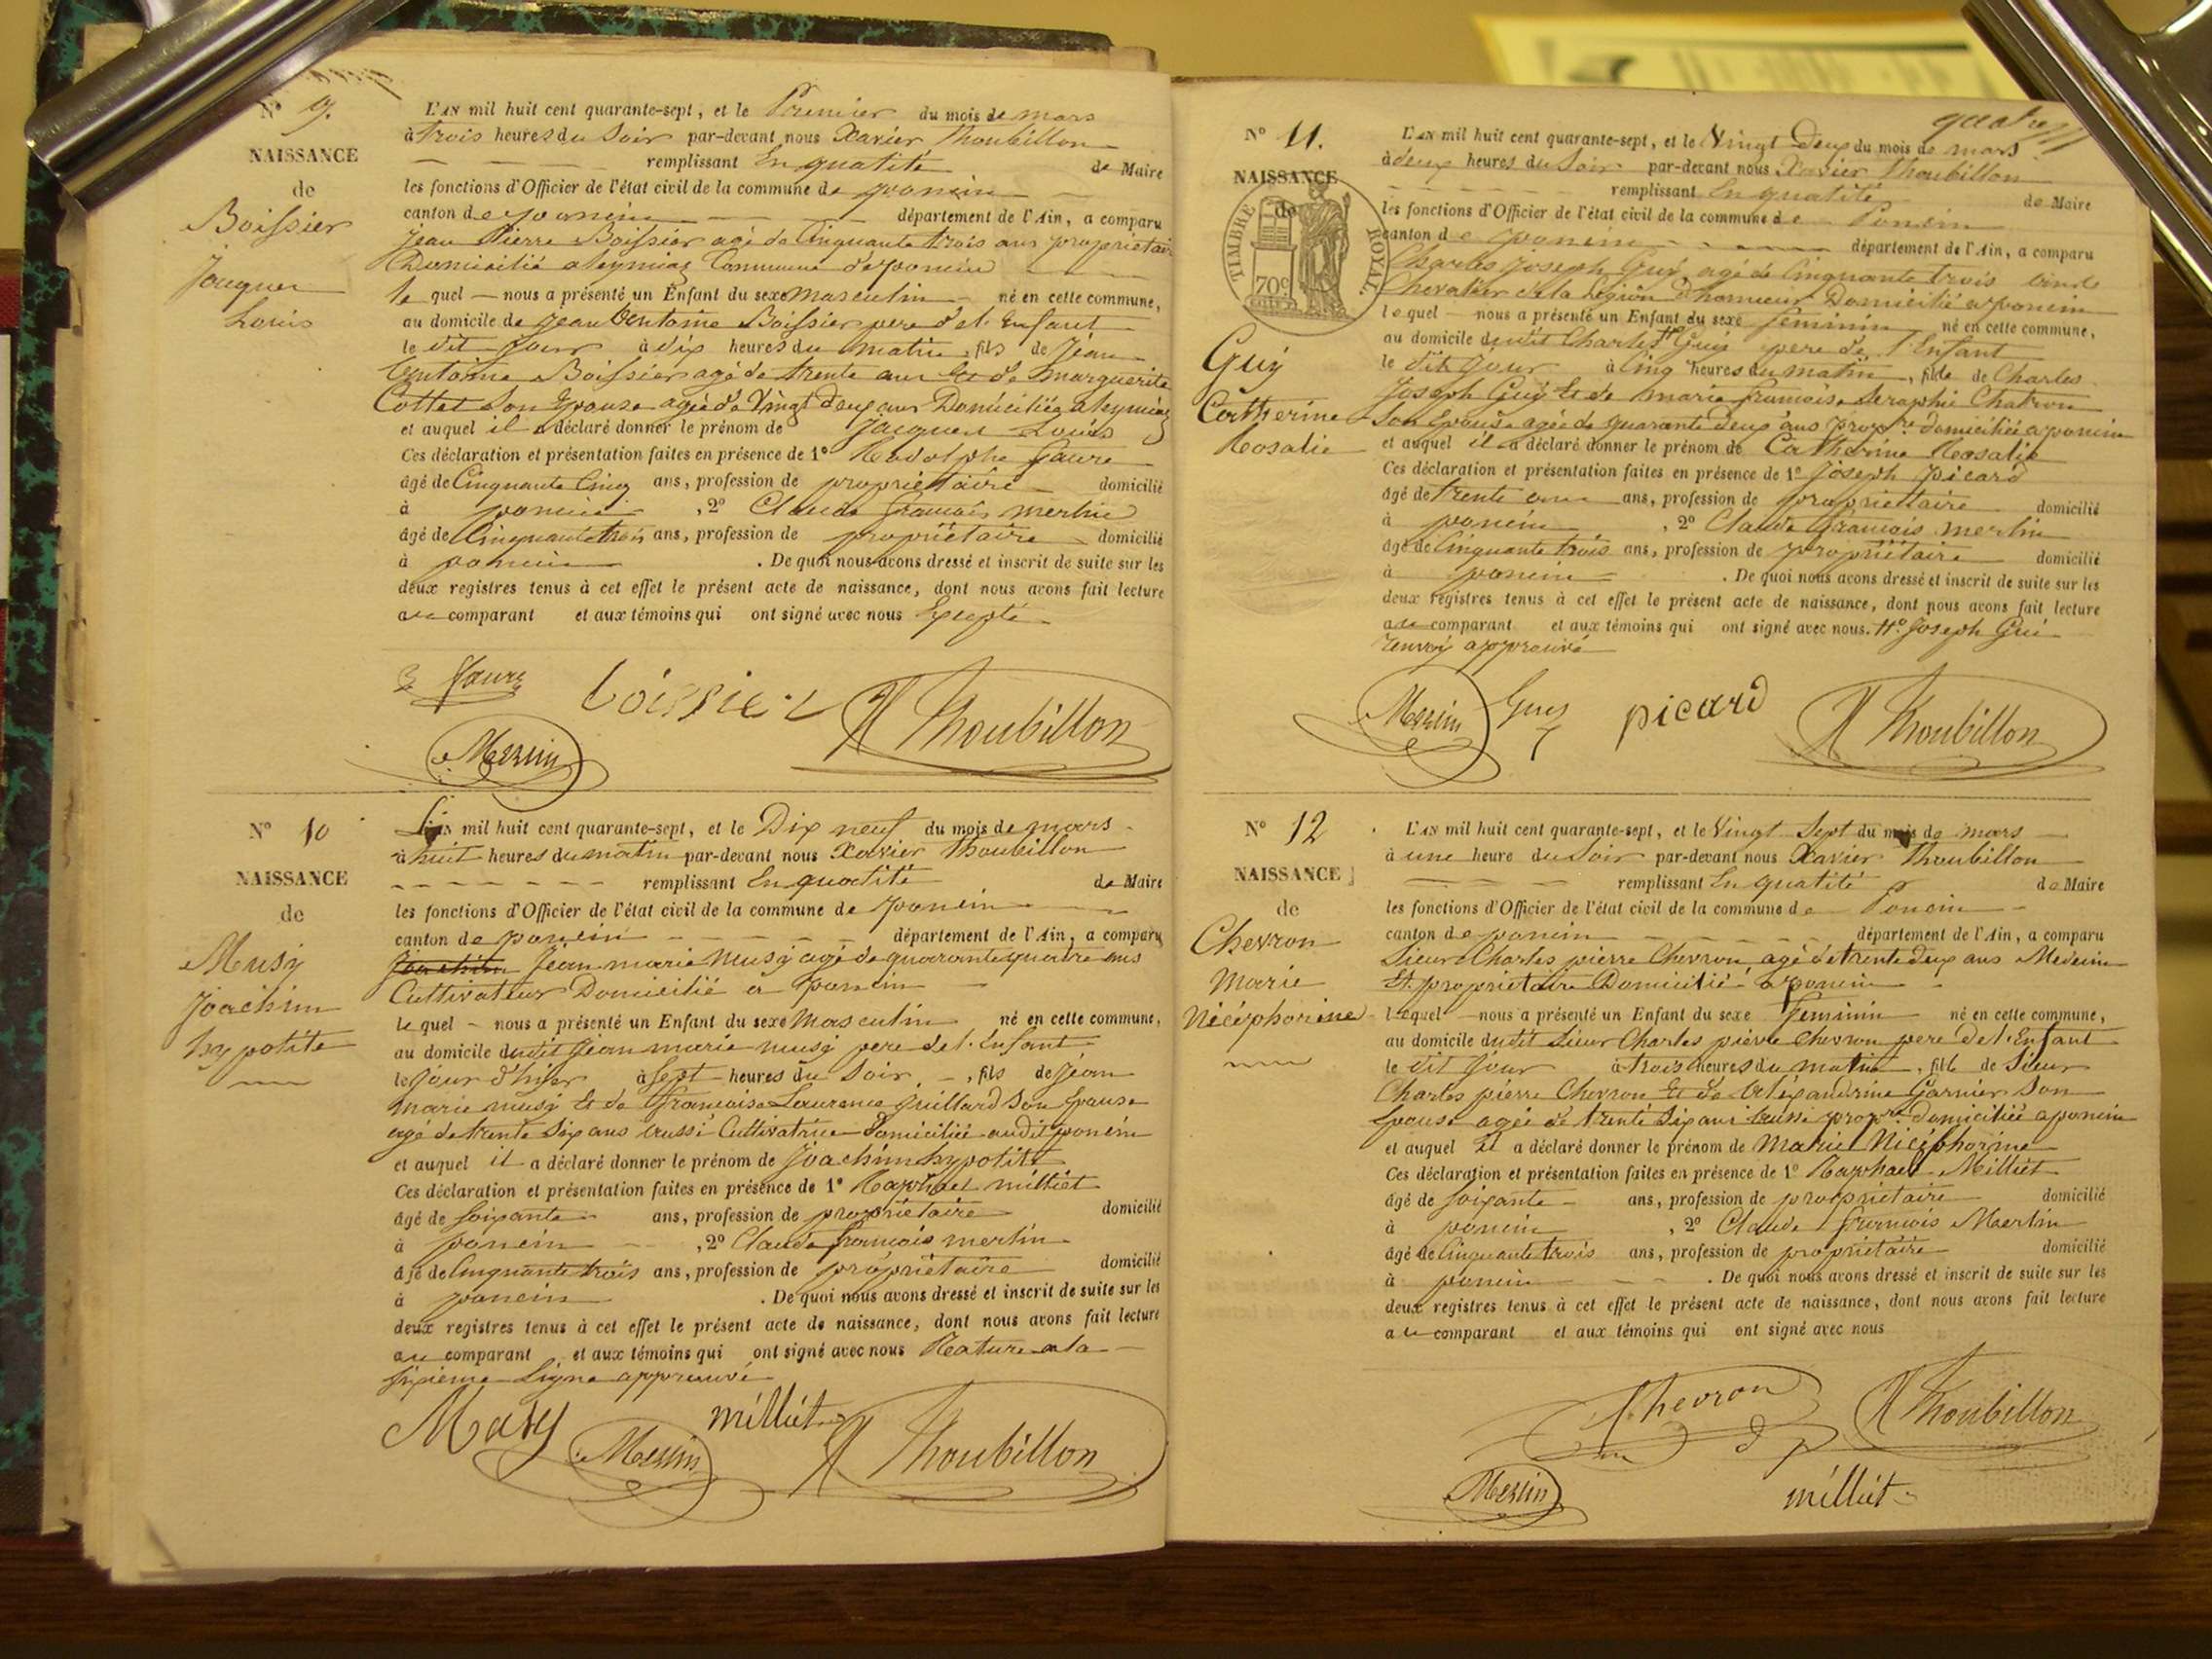 N° 9.
NAISSANCE
de
Boissier
Jacques
Louis
L'AN mil huit cent quarante-sept, et le Premier du mois de mars
à trois heures du Soir par-devant nous Xavier Thoubillon
remplissant En qualité de Maire
les fonctions d'Officier de l'état civil de la commune de poncin
canton de poncin département de l'Ain, a comparu
Jean Pierre Boissier agé de Cinquante trois ans proprietaire
Domicilié a leymiaz Commune de poncin
le quel nous a présenté un Enfant du sexe masculin né en cette commune,
au domicile de Jean Antoine Boissier pere de l'Enfant
le dit jour à dix heures du matin, fils de Jean
Antoine Boissier agé de trente ans Et de Marguerite
Cottet Son Epouse agée de Vingt deux ans Domiciliés a leymiaz
et auquel il a déclaré donner le prénom de Jacques Louis
Ces déclaration et présentation faites en présence de 1° Rodolphe faure
âgé de Cinquante Cinq ans, profession de proprietaire domicilié
à poncin , 2° Claude francois merlin
âgé de Cinquante trois ans, profession de propriétaire domicilié
à poncin . De quoi nous avons dressé et inscrit de suite sur les
deux registres tenus à cet effet le présent acte de naissance, dont nous avons fait lecture
au comparant et aux témoins qui ont signé avec nous
R faure Boissier X Thoubillon
Merlin
N° 10
NAISSANCE
de
Musy
Joachim
hypolite
L'AN mil huit cent quarante-sept, et le Dix neuf du mois de mars
à huit heures du matin par-devant nous Xavier Thoubillon
remplissant En qualité de Maire
les fonctions d'Officier de l'état civil de la commune de poncin
canton de poncin département de l'Ain, a comparu
Joachim Jean marie Musy agé de quarante quatre ans
Cultivateur Domicilié a poncin
le quel nous a présenté un Enfant du sexe masculin né en cette commune,
au domicile dudit Jean marie musy pere de l'Enfant
le jour d'hier à Sept heures du Soir, fils de Jean
marie musy Et de francoise Laurence Guillard Son Epouse
agé de trente Six ans aussi Cultivatrice domiciliée audit poncin
et auquel il a déclaré donner le prénom de Joachim hypolite
Ces déclaration et présentation faites en présence de 1° Raphael milliet
âgé de soixante ans, profession de propriétaire domicilié
à poncin , 2° Claude francois merlin
âgé de Cinquante trois ans, profession de propriétaire domicilié
à poncin . De quoi nous avons dressé et inscrit de suite sur les
deux registres tenus à cet effet le présent acte de naissance, dont nous avons fait lecture
au comparant et aux témoins qui ont signé avec nous Rature a la
sixième Ligne approuvé
Musy Merlin milliet X Thoubillon
quatre
N° 11.
NAISSANCE
de
TIMBRE ROYAL
70c
Guy
Catherine
Rosalie
L'AN mil huit cent quarante-sept, et le Vingt Deux du mois de mars
à deux heures du Soir par-devant nous Xavier Thoubillon
remplissant En qualité de Maire
les fonctions d'Officier de l'état civil de la commune de Poncin
canton de poncin département de l'Ain, a comparu
Charles Joseph Guy, agé de Cinquante trois ans
Chevalier de la Légion D'honneur Domicilié a poncin
le quel nous a présenté un Enfant du sexe feminin né en cette commune,
au domicile dudit Charles Guy pere de l'Enfant
le dit jour à Cinq heures du matin, fille de Charles
Joseph Guy Et de marie francoise Seraphie Chatron
Son Epouse agée de quarante deux ans propre domiciliée a poncin
et auquel il a déclaré donner le prénom de Catherine Rosalie
Ces déclaration et présentation faites en présence de 1° Joseph picard
âgé de trente ans, profession de proprietaire domicilié
à poncin , 2° Claude francois merlin
âgé de Cinquante trois ans, profession de propriétaire domicilié
à poncin . De quoi nous avons dressé et inscrit de suite sur les
deux registres tenus à cet effet le présent acte de naissance, dont nous avons fait lecture
au comparant et aux témoins qui ont signé avec nous. Joseph Gui
renvoy approuvé
Merlin Guy picard X Thoubillon
N° 12
NAISSANCE
de
Chevron
Marie
Nicéphorine
L'AN mil huit cent quarante-sept, et le Vingt Sept du mois de mars
à une heure du Soir par-devant nous Xavier Thoubillon
remplissant En qualité de Maire
les fonctions d'Officier de l'état civil de la commune de Poncin
canton de poncin département de l'Ain, a comparu
Sieur Charles pierre Chevron agé de trente deux ans Medecin
Et proprietaire Domicilié a poncin
lequel nous a présenté un Enfant du sexe feminin né en cette commune,
au domicile dudit Sieur Charles pierre Chevron pere de l'Enfant
le dit jour à trois heures du matin, fille de Sieur
Charles pierre Chevron Et de Alexandrine Garnier Son
Epouse agée de trente Six ans aussi propre domiciliée a poncin
et auquel il a déclaré donner le prénom de Marie Nicéphorine
Ces déclaration et présentation faites en présence de 1° Raphael Milliet
âgé de soixante ans, profession de proprietaire domicilié
à poncin , 2° Claude francois Merlin
âgé de Cinquante trois ans, profession de propriétaire domicilié
à poncin . De quoi nous avons dressé et inscrit de suite sur les
deux registres tenus à cet effet le présent acte de naissance, dont nous avons fait lecture
au comparant et aux témoins qui ont signé avec nous
Chevron X Thoubillon
Merlin milliet